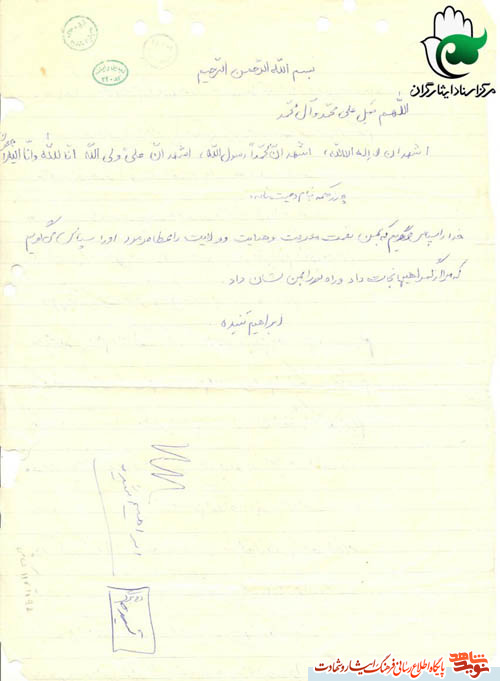 مرکز اسناد ایثارگران
بسم الله الرحمن الرحیم
اللهم صل علی محمد و آل محمد
اشهد ان لا اله الا الله، اشهد ان محمداً رسول الله، اشهد ان علی ولی الله انا لله و انا الیه
چند کلمه بنام وصیت نامه:
خدا را سپاس میگویم که بمن نعمت مدیریت و هدایت و ولایت را عطا فرمود او را سپاس می گویم
که مرا از گمراهیها نجات داد و راه نور را بمن نشان داد.
ابراهیم تنیده
ابراهیم تنیده
نوید شاهد
پایگاه اطلاع رسانی فرهنگ ایثار و شهادت